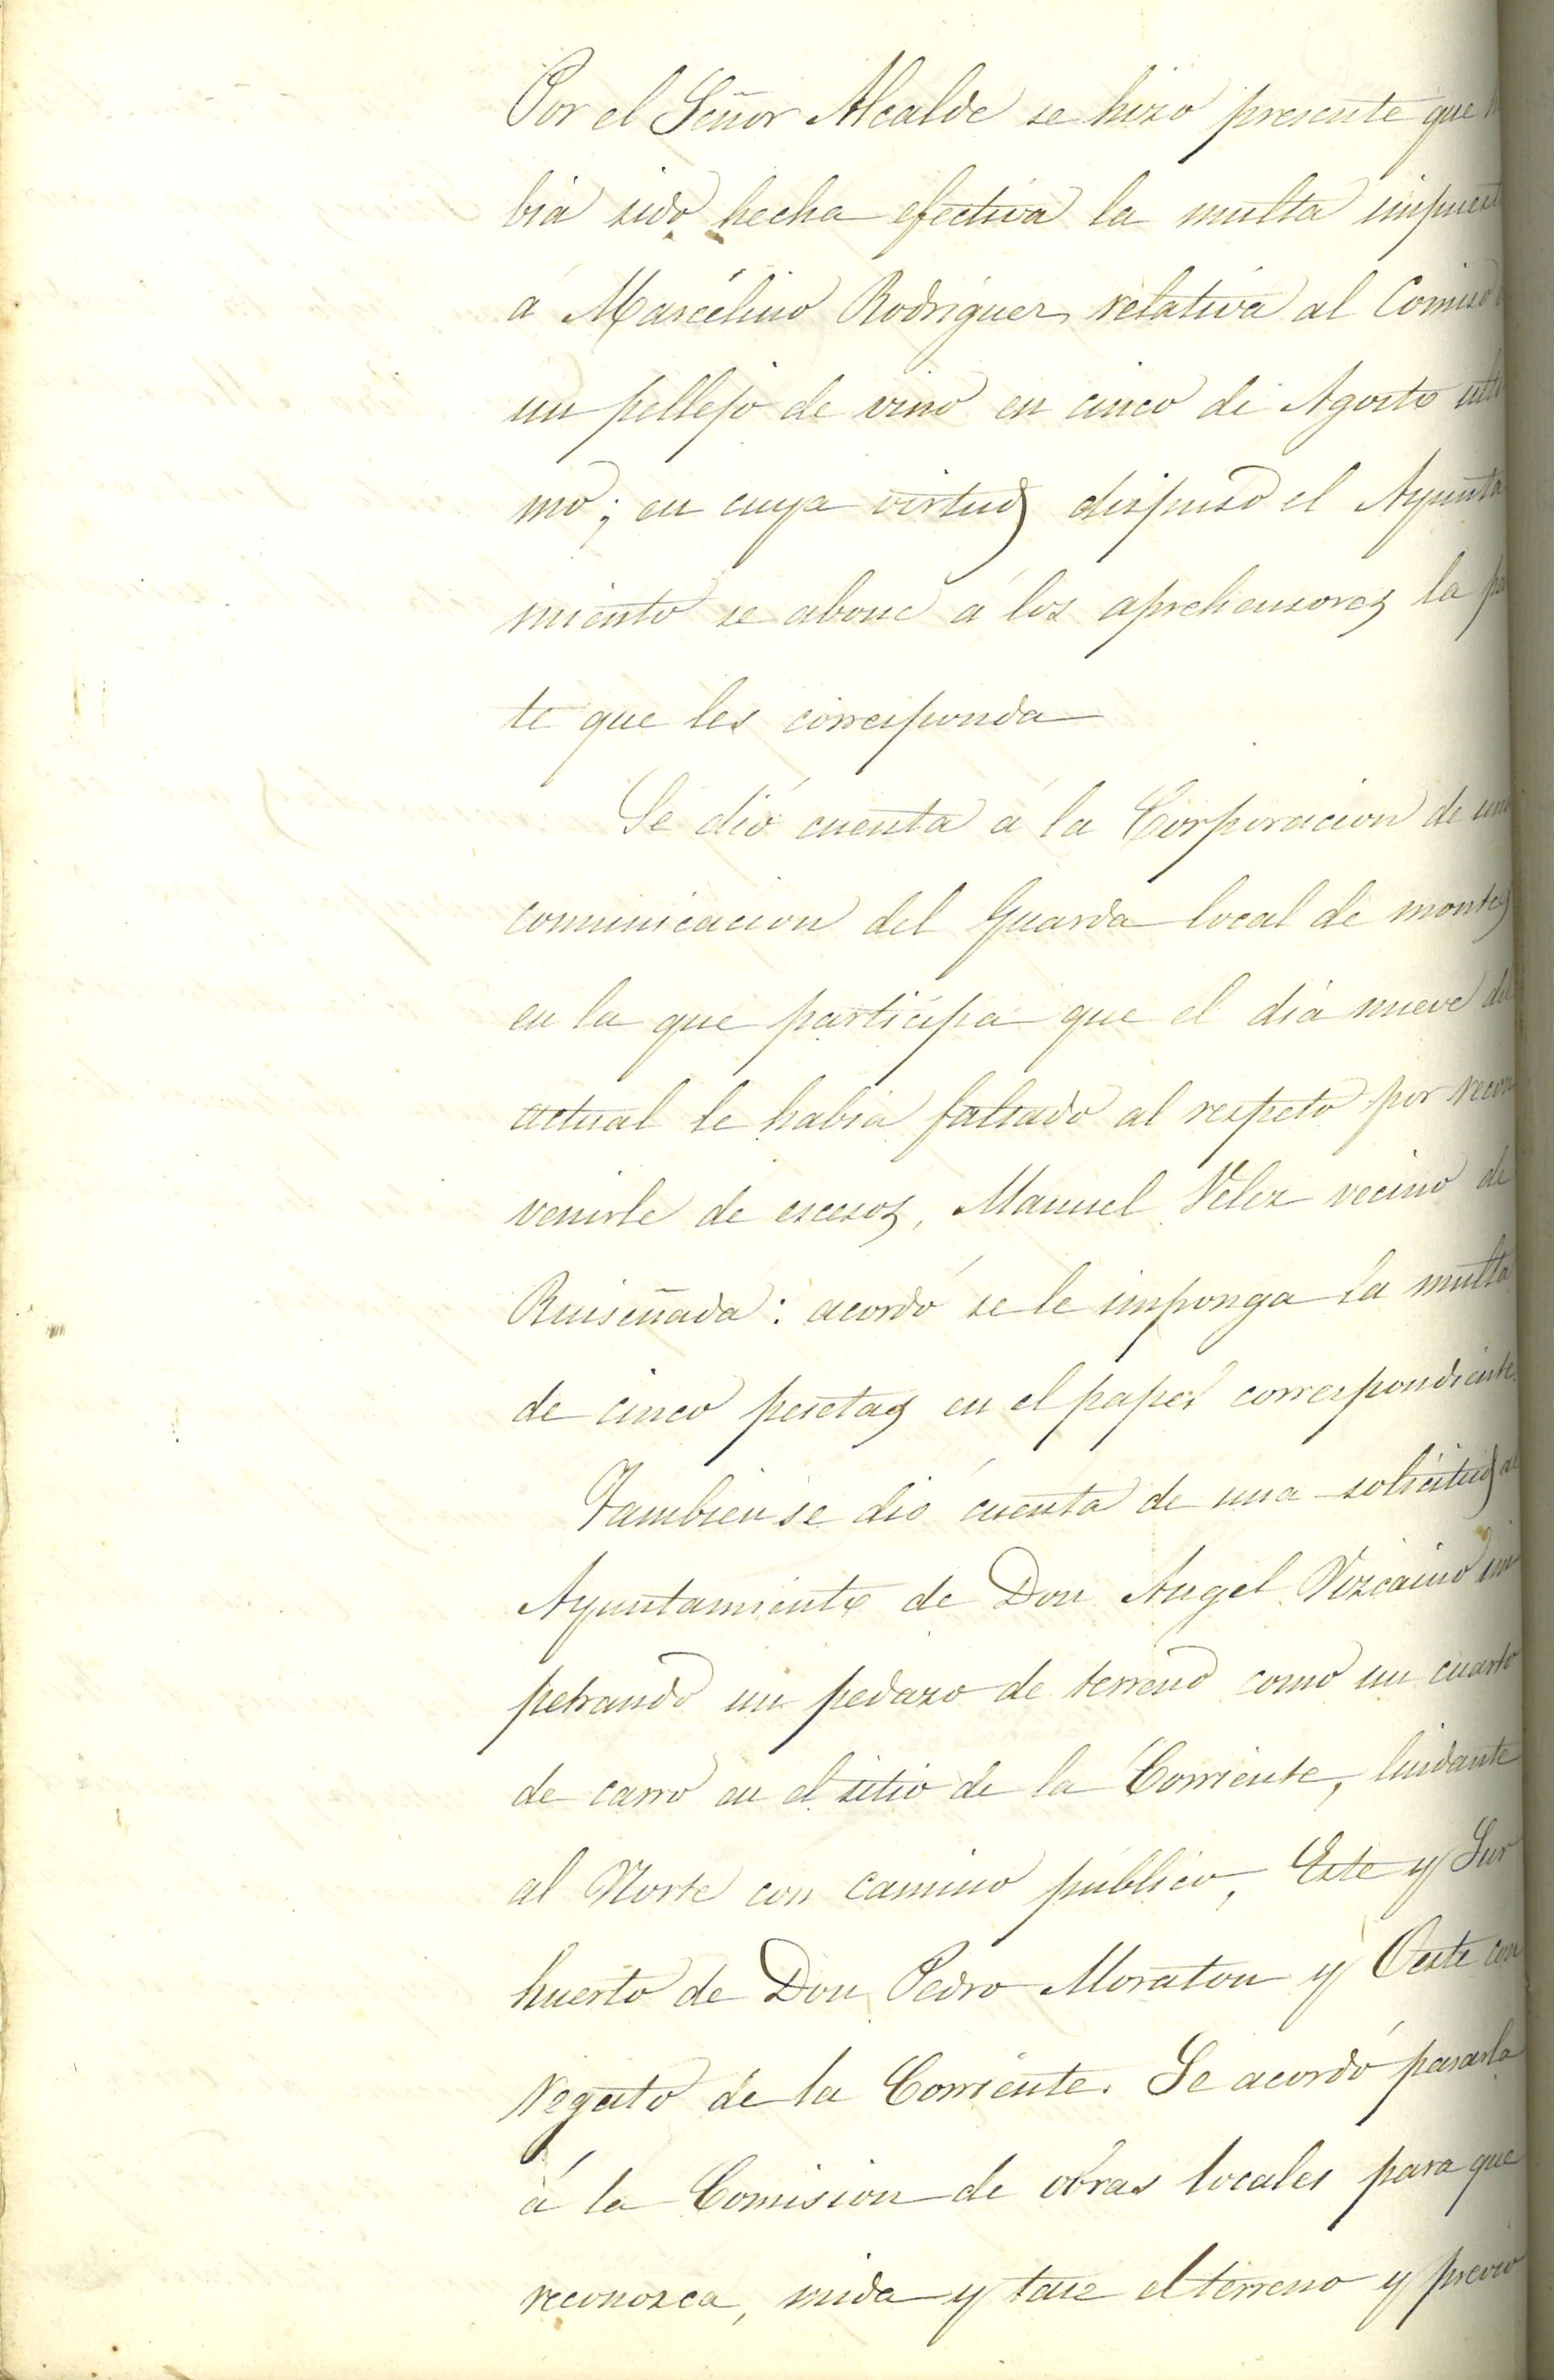 Por el Señor Alcalde se hizo presente que
bia sido hecha efectiva la multa impuest
á Marcelino Rodriguez relativa al Comiso
un pellejo de vino en cinco de Agosto ulti
mo; en cuya virtud dispuso el Ayunta
miento se abone á los aprehensores la pa
te que les corresponda
Se dió cuenta á la Corporacion de una
comunicacion del Guarda local de montes
en la que participa que el dia nueve del
actual le habia faltado al respeto por recon
venirle de escesos, Manuel Velez vecino de
Ruiseñada: acordó se le imponga la multa
de cinco pesetas en el papel correspondiente.
Tambien se dió cuenta de una solicitud al
Ayuntamiento de Don Angel Vizcaino im
petrando un pedazo de terreno como un cuarto
de carro en el sitio de la Corriente, lindante
al Norte con camino público, Este y Sur
huerto de Don Pedro Moraton y Oeste con
regato de la Corriente. Se acordó pasarla
á la Comision de obras locales para que
reconozca, mida y tase el terreno y previo